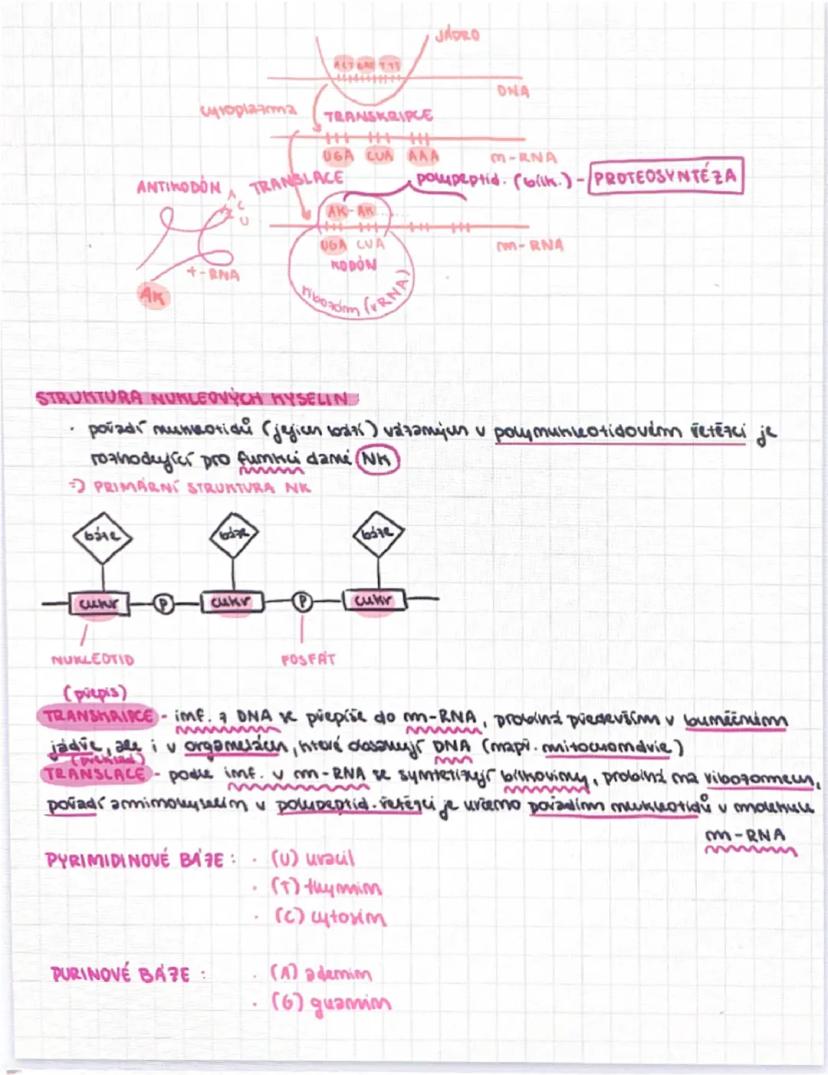 JÁDRO
ACT GAT TTT
DNA
cytoplazma
TRANSKRIPCE
UGA CUA AAA m-RNA
ANTIKODÓN TRANSLACE polypeptid. (bílk.) - PROTEOSYNTÉZA
A C U
AK-AK......
UGA CUA m-RNA
t-RNA KODÓN
AK
ribozóm (rRNA)
STRUKTURA NUKLEOVÝCH KYSELIN
· pořadí nukleotidů (jejich bází) vázaných v polynukleotidovém řetězci je
rozhodující pro funkci dané NK
=> PRIMÁRNÍ STRUKTURA NK
báze báze báze
cukr P cukr P cukr
NUKLEOTID FOSFÁT
(přepis)
TRANSKRIPCE - inf. z DNA se přepíše do m-RNA, probíhá především v buněčném
jádře, ale i v organelách, které obsahují DNA (např. mitochondrie)
(překlad)
TRANSLACE - podle inf. v m-RNA se syntetizují bílkoviny, probíhá na ribozomech,
pořadí aminokyselin v polypeptid. řetězci je určeno pořadím nukleotidů v molekule
m-RNA
PYRIMIDINOVÉ BÁZE : · (U) uracil
· (T) thymin
· (C) cytosin
PURINOVÉ BÁZE : · (A) adenin
· (G) guanin